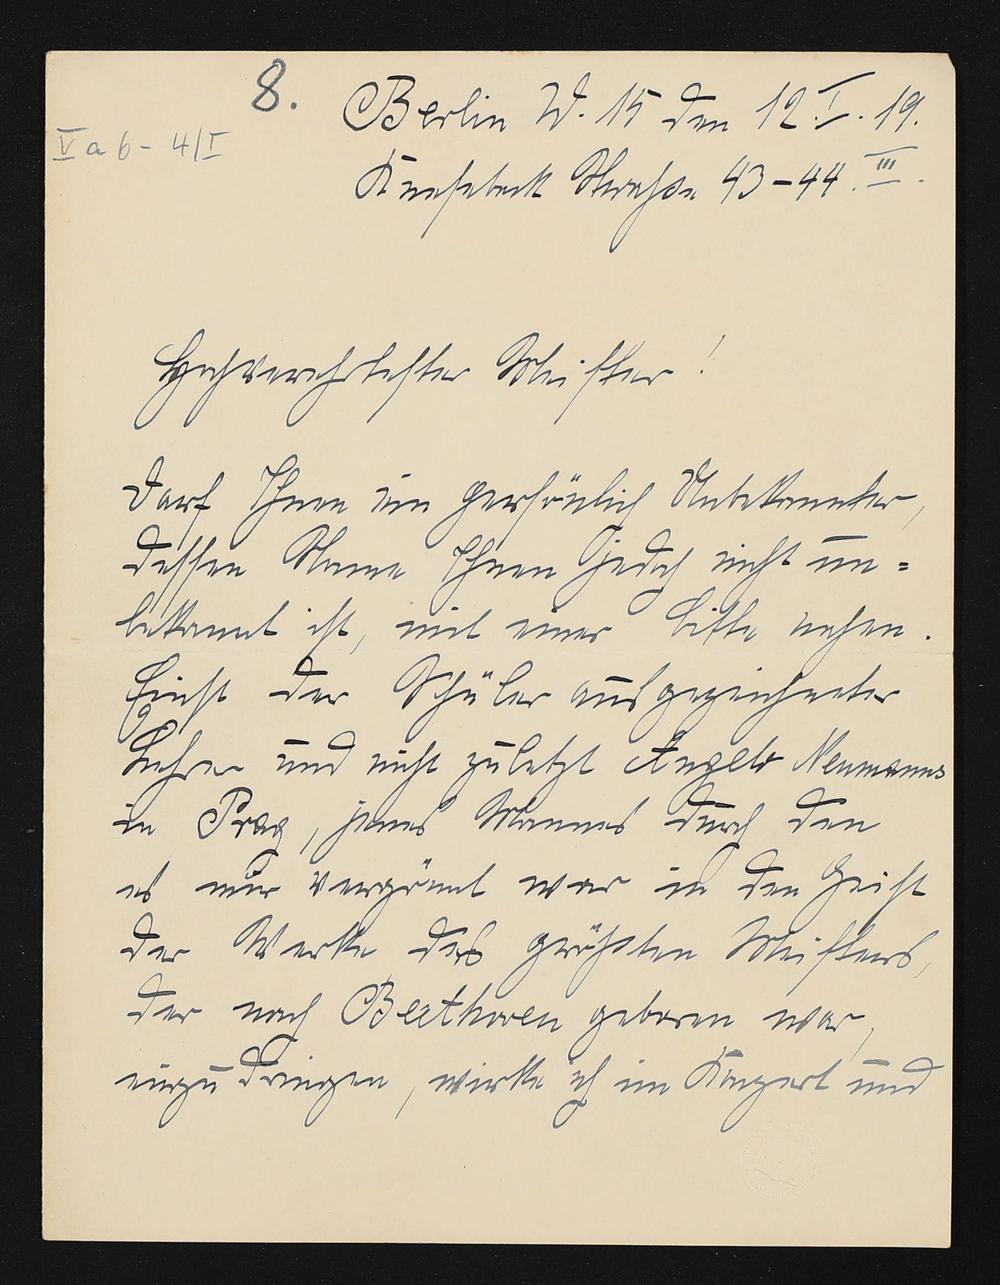 8.
Berlin W. 15 den 12.I.19.
V a 6 - 4/I
Knesebeck Strasse 43-44.III.
Hochverehrtester Meister!
Darf Ihnen ein persönlich Unbekannter,
dessen Name Ihnen jedoch nicht un=
bekannt ist, mit einer Bitte nahen.
Einst der Schüler ausgezeichneter
Lehrer und nicht zuletzt Angelo Neumanns
in Prag, jenes Mannes durch den
es mir vergönnt war in den Geist
der Werke des größten Meisters,
der nach Beethoven geboren war,
einzudringen, wirke ich im Konzert und